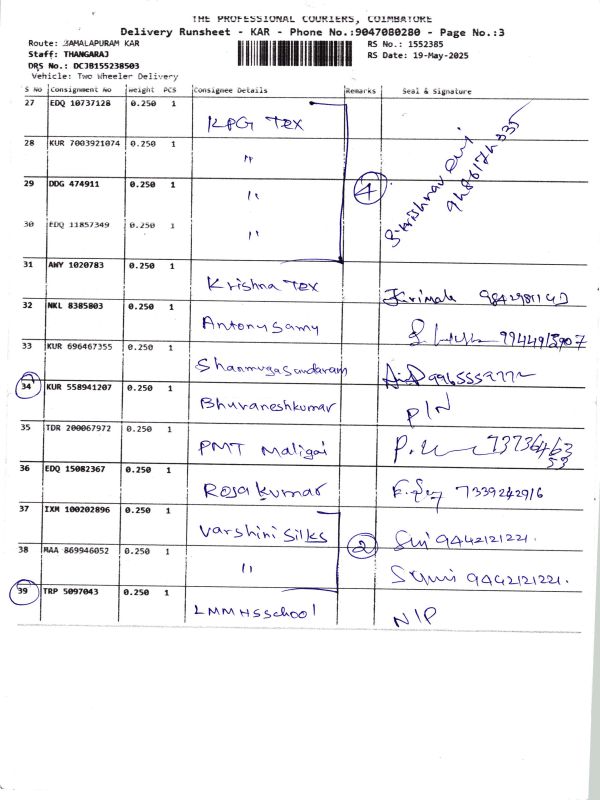 THE PROFESSIONAL COURIERS, COIMBATORE
Delivery Runsheet - KAR - Phone No.:9047080280 - Page No.:3
Route: RAMALAPURAM KAR
RS No.: 1552385
Staff: THANGARAJ
RS Date: 19-May-2025
DRS No.: DCJB155238503
Vehicle: Two Wheeler Delivery
S No Consignment No Weight PCS Consignee Details Remarks Seal & Signature
27 EDQ 10737128 0.250 1 KPG Tex
28 KUR 7003921074 0.250 1 "
29 DDG 474911 0.250 1 " 4
30 EDQ 11857349 0.250 1 "
9486174335
31 AWY 1020783 0.250 1 Krishna Tex
32 NKL 8385803 0.250 1 Antonysamy
33 KUR 696467355 0.250 1 Shanmugasundaram
34 KUR 558941207 0.250 1 Bhuvaneshkumar P/N
35 TDR 200067972 0.250 1 PMT Maligai
36 EDQ 15082367 0.250 1 Rosa kumar 7339242916
37 IXM 100202896 0.250 1 Varshini Silks 2 9442121221.
38 MAA 869946052 0.250 1 " 9442121221.
39 TRP 5097043 0.250 1 LMMHSSchool N/P